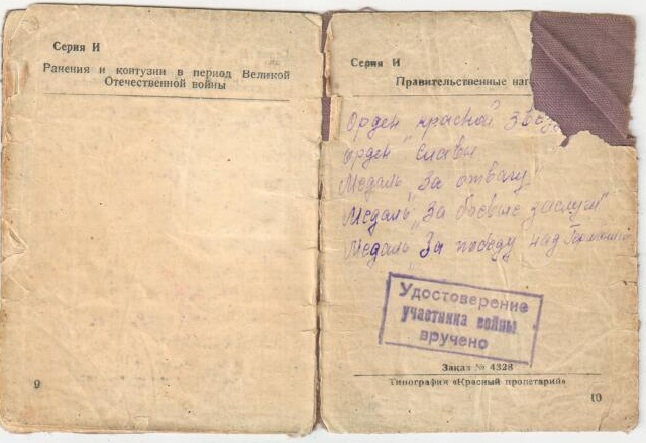 Серия И
Ранения и контузии в период Великой
Отечественной войны
9
Серия И
Правительственные наг
Орден красной звез
орден "Славы
Медаль "За отвагу"
Медаль "За боевые заслуги"
Медаль "За победу над Германией
Удостоверение
участника войны
вручено
Заказ № 4328
Типография «Красный пролетарий»
10